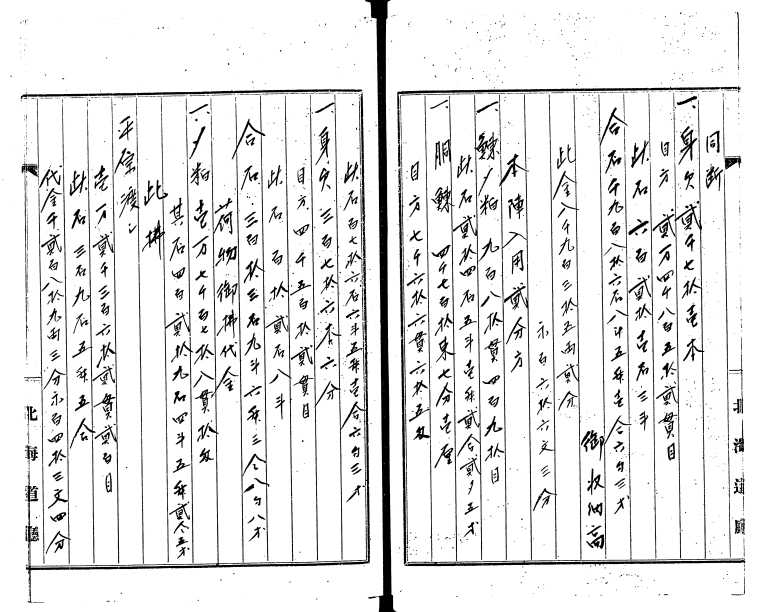 同断
一、身欠 貳千七拾壱本
目方 貳万四千八百五拾貳貫目
此石 六百貳拾壱石三斗
合石 千九百八拾六石八斗五舛壱合六勺三才
御収納高
此金八千九百三拾五両貳分
永百六拾六文三分
本陣入用貳分方
一、鰊〆粕 九百八拾貫四百九拾目
此石貳拾四石五斗壱舛貳合貳夕五才
一 胴鰊 四千百拾束七分壱厘
目方 七千六拾六貫六拾五匁
此石百七拾六石六斗五舛壱合六勺三才
一 身欠 三百七拾六本六分
目方 四千五百拾貳貫目
此石 百拾貳石八斗
合石 三百拾三石九斗六舛三合八勺八才
荷物御拂代金
一、〆粕 壱万七千百七拾八貫拾匁
其石四百貳拾九石四斗五舛貳合五才
此拂
平原渡し
壱万貳千三百六拾貳貫貳百目
此石 三百九石五舛五合
代金千貳百八拾九両三分永百四拾三文四分
北海道廳
北海道廳